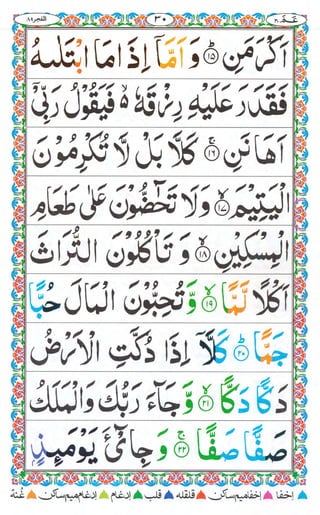 عـمّ ٣٠ ٣٠ الفجر ٨٩
اَكْرَمَنِ ۞ؕ۱۵ وَ اَمَّاۤ اِذَا مَا ابْتَلٰىهُ
فَقَدَرَ عَلَیْهِ رِزْقَهٗ ۙ۬ فَیَقُوْلُ رَبِّیْۤ
اَهَانَنِ ۚ۱۶ كَلَّا بَلْ لَّا تُكْرِمُوْنَ
الْیَتِیْمَ ۙ۱۷ وَلَا تَحٰٓضُّوْنَ عَلٰی طَعَامِ
الْمِسْكِیْنِ ۙ۱۸ وَ تَاْكُلُوْنَ التُّرَاثَ
اَكْلًا لَّمًّا ۙ۱۹ وَّ تُحِبُّوْنَ الْمَالَ حُبًّا
جَمًّا ؕ۲۰ كَلَّاۤ اِذَا دُكَّتِ الْاَرْضُ
دَكًّا دَكًّا ۙ۲۱ وَّ جَآءَ رَبُّكَ وَالْمَلَكُ
صَفًّا صَفًّا ۚ۲۲ وَ جِایْٓءَ یَوْمَىِٕذٍۭ
اخفا اخفا میم ساکن قلقلہ قلب ادغام ادغام میم ساکن غنہ